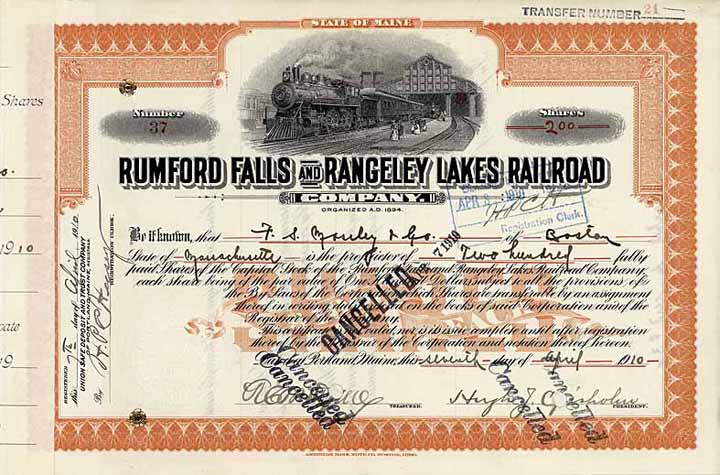 TRANSFER NUMBER 21
STATE OF MAINE
Shares
Number
37
Shares
200
RUMFORD FALLS AND RANGELEY LAKES RAILROAD
COMPANY.
ORGANIZED A.D. 1894.
APR
Registration Clerk.
Be it known, that F. S. & Co. of Boston
State of Massachusetts is the proprietor of Two hundred fully
paid Shares of the Capital Stock of the Rumford Falls and Rangeley Lakes Railroad Company,
each share being of the par value of One Hundred Dollars subject to all the provisions of
the By Laws of the Corporation, which Shares are transferable by an assignment
thereof in writing recorded in the books of said Corporation and of the
Registrar of the Company.
This certificate is not valid nor is issue complete until after registration
hereof by the Registrar of the Corporation and notation thereof hereon.
Dated by Portland, Maine, this seventh day of April 1910
TREASURER.
Hugh J. Chisholm
PRESIDENT.
CANCELLED 7 1910
Cancelled
Cancelled
Cancelled
Cancelled
REGISTERED
this 7th day of April 1910
UNION SAFE DEPOSIT AND TRUST COMPANY
OF PORTLAND, MAINE, REGISTRAR
By
REGISTRATION CLERK.
1910